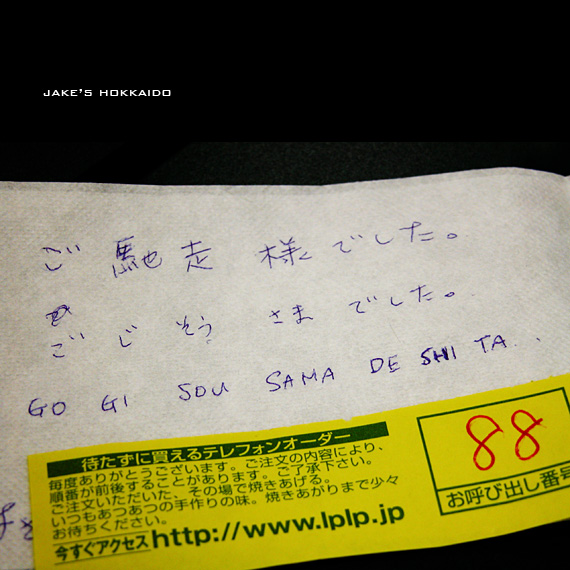 JAKE'S HOKKAIDO
ご馳走様でした。
ごじそうさまでした。
GO GI SOU SAMA DE SHI TA...
待たずに買えるテレフォンオーダー
毎度ありがとうございます。ご注文の内容により、
順番が前後することがあります。ご了承下さい。
ご注文いただいた、その場で焼きあげる。
いつもあつあつの手作りの味。焼きあがりまで少々
お待ちください。
今すぐアクセスhttp://www.lplp.jp
88
お呼び出し番号